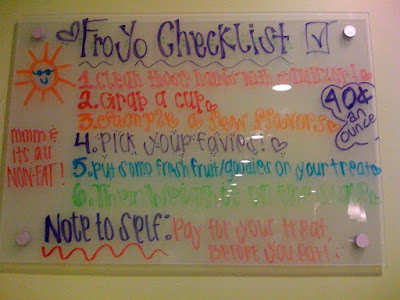 FroYo Checklist
1. Clean those hands with sanitizer!
2. Grab a cup
3. Sample a few flavors
4. Pick your faves!
5. Put some fresh fruit/goodies on your treat
6. Then weigh it on the scale
40¢
an
ounce
mmm &
its all
NON-FAT!
Note to Self: Pay for your treat
before you eat! :